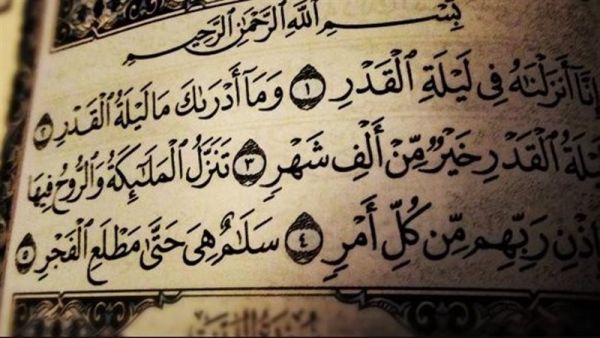 بِسْمِ ٱللَّهِ ٱلرَّحْمَٰنِ ٱلرَّحِيمِ
إِنَّآ أَنزَلْنَٰهُ فِى لَيْلَةِ ٱلْقَدْرِ ١ وَمَآ أَدْرَىٰكَ مَا لَيْلَةُ ٱلْقَدْرِ ٢
يْلَةُ ٱلْقَدْرِ خَيْرٌ مِّنْ أَلْفِ شَهْرٍ ٣ تَنَزَّلُ ٱلْمَلَٰٓئِكَةُ وَٱلرُّوحُ فِيهَا
إِذْنِ رَبِّهِم مِّن كُلِّ أَمْرٍ ٤ سَلَٰمٌ هِىَ حَتَّىٰ مَطْلَعِ ٱلْفَجْرِ ٥